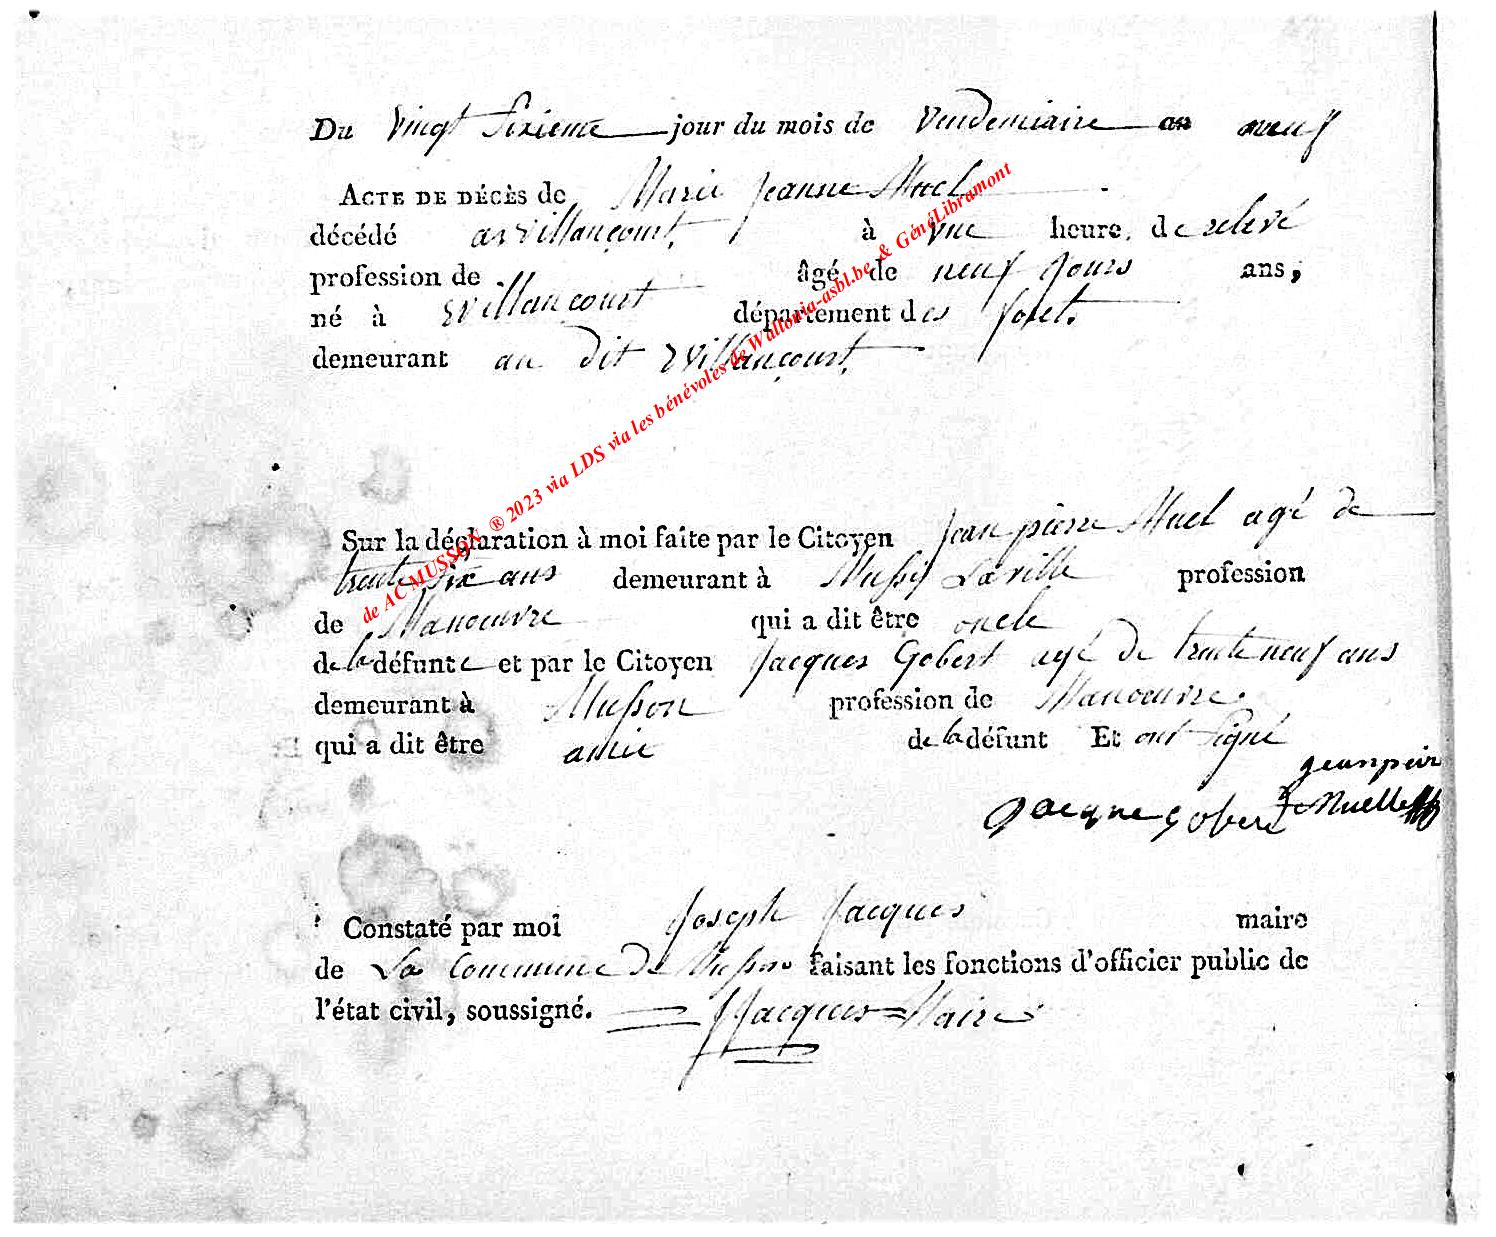 Du vingt sixieme jour du mois de vendemiaire an neuf
ACTE DE DÉCÈS de Marie Jeanne Muel
décédé a Willancourt à une heure, de relevé
profession de âgé de neuf jours ans,
né à Willancourt département des foret.
demeurant au dit Willancourt.
Sur la déclaration à moi faite par le Citoyen Jean pierre Muel agé de
trente six ans demeurant à Mussy Laville profession
de Manoeuvre qui a dit être oncle
de la défunte et par le Citoyen Jacques Gobert agé de trente neuf ans
demeurant à Musson profession de Manoeuvre.
qui a dit être amie de la défunt Et ont signé
jeanpeir
Jacque gobert Muelle
Constaté par moi Joseph Jacques maire
de La Commune de Musson faisant les fonctions d'officier public de
l'état civil, soussigné. JJacques Maire
de AC MUSSON ® 2023 via LDS via les bénévoles de Wallonia-asbl.be & GénéLibramont